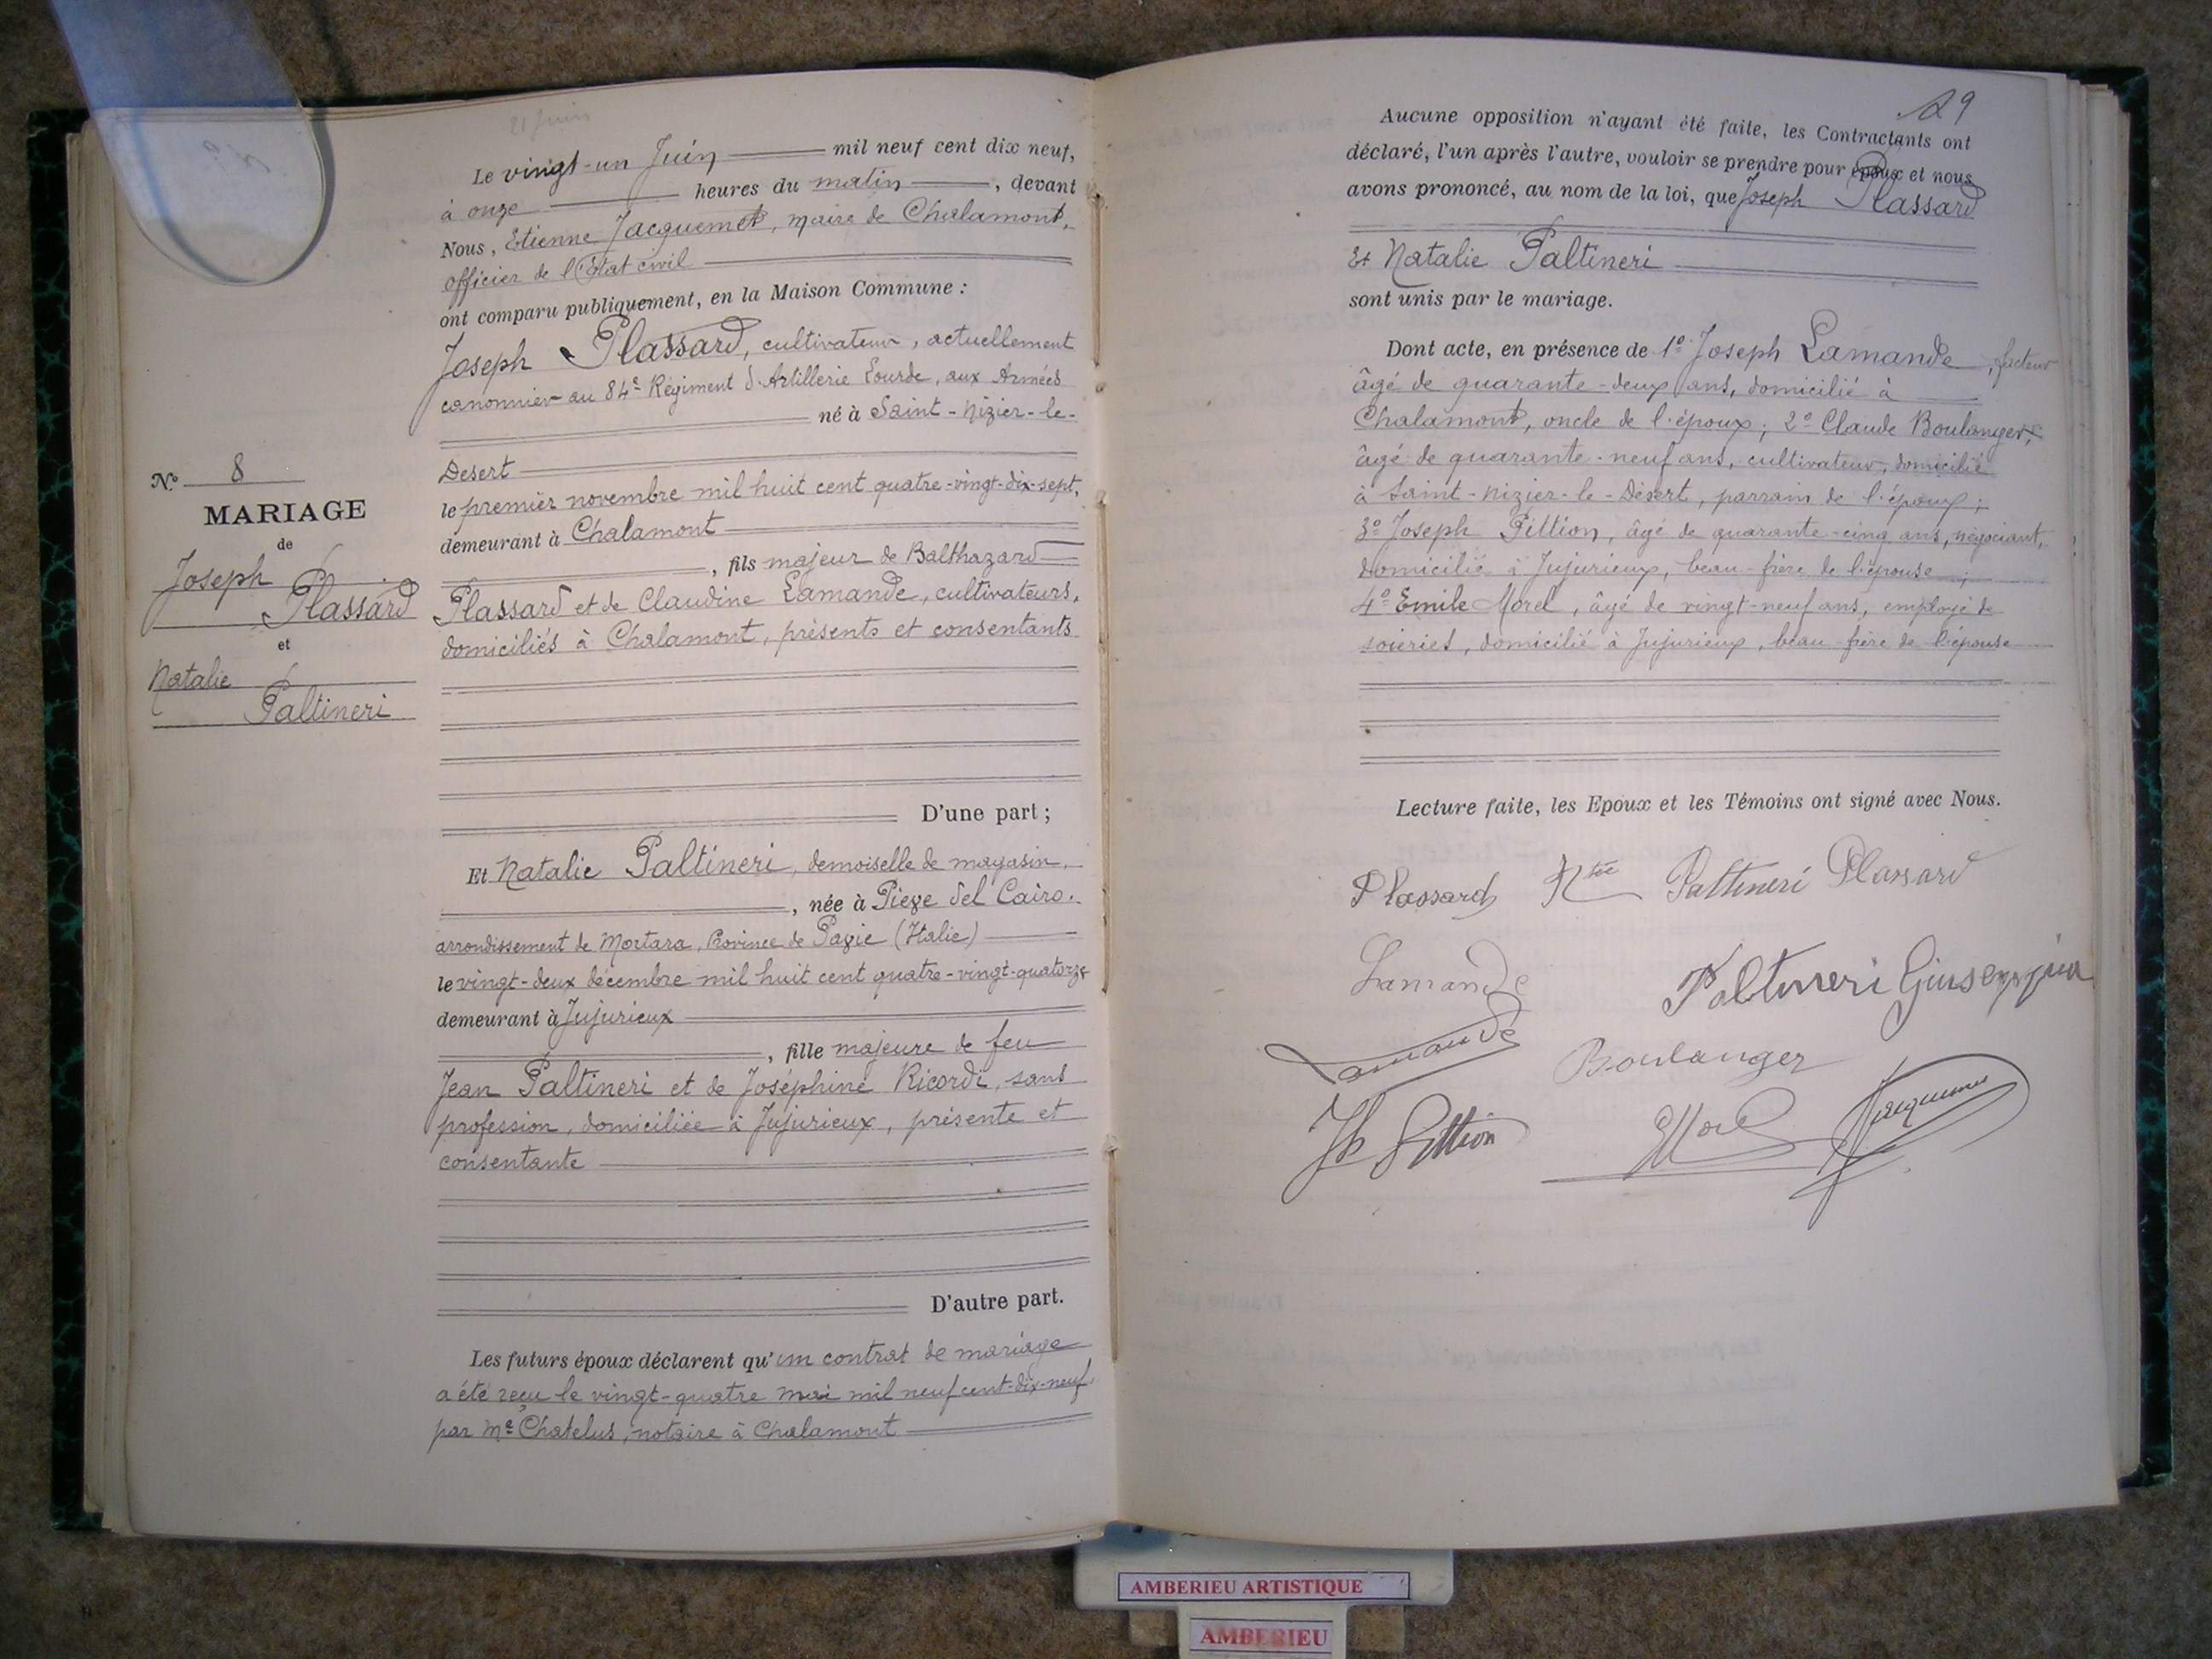 21 Juin
Le vingt-un Juin mil neuf cent dix neuf,
à onze heures du matin, devant
Nous, Etienne Jacquemet, maire de Chalamont,
officier de l'Etat civil
ont comparu publiquement, en la Maison Commune :
Joseph Plassard, cultivateur, actuellement
canonnier au 84e Régiment d'Artillerie Lourde, aux Armées
né à Saint-Nizier-le-
Desert
le premier novembre mil huit cent quatre-vingt-dix-sept,
demeurant à Chalamont
, fils majeur de Balthazard
Plassard et de Claudine Lamande, cultivateurs,
domiciliés à Chalamont, présents et consentants
D'une part ;
Et Natalie Paltineri, demoiselle de magasin,
, née à Piege del Cairo,
arrondissement de Mortara, Province de Pavie (Italie)
le vingt-deux décembre mil huit cent quatre-vingt-quatorze
demeurant à Jujurieux
, fille majeure de feu
Jean Paltineri et de Joséphine Ricordi, sans
profession, domiciliée à Jujurieux, présente et
consentante
D'autre part.
Les futurs époux déclarent qu'un contrat de mariage
a été reçu le vingt-quatre mai mil neuf cent-dix-neuf
par Me Chatelus, notaire à Chalamont
No. 8
MARIAGE
de
Joseph
Plassard
et
Natalie
Paltineri
29
Aucune opposition n'ayant été faite, les Contractants ont
déclaré, l'un après l'autre, vouloir se prendre pour époux et nous
avons prononcé, au nom de la loi, que Joseph Plassard
Et Natalie Paltineri
sont unis par le mariage.
Dont acte, en présence de 1o Joseph Lamande, facteur
âgé de quarante-deux ans, domicilié à
Chalamont, oncle de l'époux ; 2o Claude Boulanger,
âgé de quarante-neuf ans, cultivateur, domicilié
à Saint-Nizier-le-Désert, parrain de l'époux ;
3o Joseph Pittion, âgé de quarante-cinq ans, négociant,
domicilié à Jujurieux, beau-frère de l'épouse ;
4o Emile Morel, âgé de vingt-neuf ans, employé de
soieries, domicilié à Jujurieux, beau-frère de l'épouse
Lecture faite, les Epoux et les Témoins ont signé avec Nous.
Plassard Ntée Paltineri Plassard
Lamande Paltineri Giuseppina
Lamande Boulanger
Jh Pittion Morel Jacquemet
AMBERIEU ARTISTIQUE
AMBERIEU